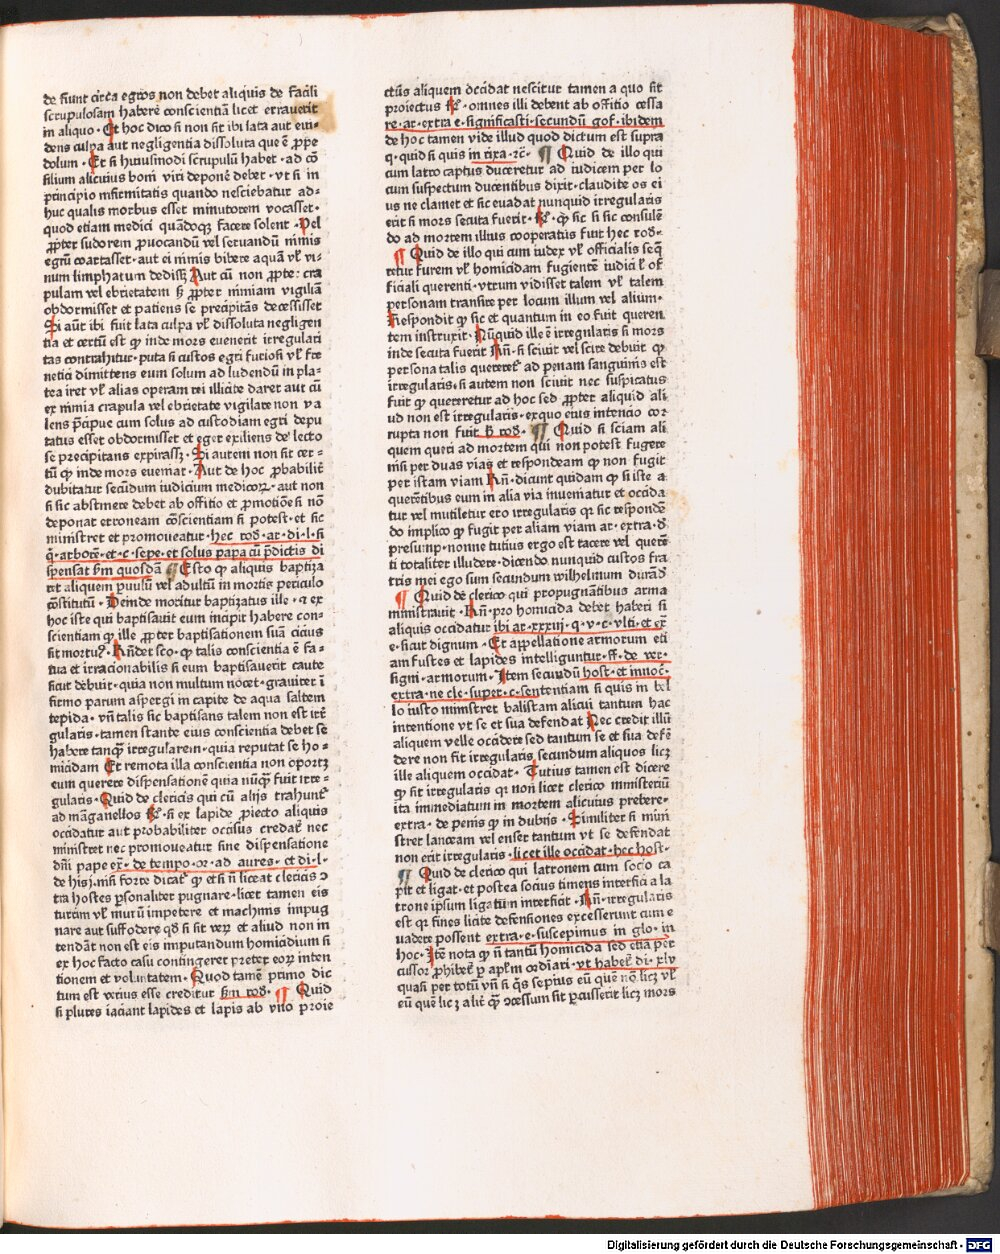 de fiunt circa egros non debet aliquis de facili
scrupulosam habere conscientiā licet erraverit
in aliquo · Et hoc dico si non sit ibi lata aut evi⸗
dens culpa aut negligentia dissoluta que ē ꝓpe
dolum · Et si huiusmodi scrupulū habet · ad cō
silium alicuius boni viri deponē debet · vt si in
principio infirmitatis quando nesciebatur ad⸗
huc qualis morbus esset minutorem vocasset ·
quod etiam medici quādoqꝫ facere solent · Vel
ꝓpter sudorem ꝓuocandū vel seruandū nimis
egrū coartasset · aut ei nimis bibere aquā vł vi⸗
num limphatum dedissꝫ Aut cū non ꝓpter cra
pulam vel ebrietatem sꝫ ꝓpter nimiam vigiliā
obdormisset et patiens se precipitās decessisset
Si aūt ibi fuit lata culpa vł dissoluta negligen
tia et certū est ꝙ inde mors euenerit irregulari
tas contrahitur · puta si custos egri furiosi vł fre
netici dimittens eum solum ad ludendū in pla⸗
tea iret vł alias operam rei illicite daret aut cū
ex nimia crapula vel ebrietate vigilare non va
lens p̄cipue cum solus ad custodiam egri depu
tatus esset obdormisset et eger exiliens de lecto
se precipitans expirassꝫ · Si autem non sit cer⸗
tū ꝙ inde mors eueniat · Aut de hoc ꝓbabilit̄
dubitatur secūdum iudicium medicoꝝ · aut non
si sic abstinere debet ab officio et ꝓmotiōe si nō
deponat erroneam cōscientiam si potest · et sic
ministret et promoueatur · hec rod̄ · ar · di · l · si
q̄ · arborē · et · c · sepe · et solus papa cū p̄dictis di
spensat sꝫm quosdā ¶ Esto ꝙ aliquis baptiza
ret aliquem ꝑuulū vel adultū in mortis periculo
cōstitutū · Deinde moritur baptizatus ille · ⁊ ex
hoc iste qui baptisauit eum incipit habere con⸗
scientiam ꝙ ille ꝓpter baptisationem suā citius
sit mortuꝰ · Rn̄det sco · ꝙ talis conscientia ē fa⸗
tua et irracionabilis si eum baptisauerit caute
sicut debuit · quia non multum nocet · grauiter ī
firmo parum aspergi in capite de aqua saltem
tepida · vn̄ talis sic baptisans talem non est irre
gularis · tamen stante eius conscientia debet se
habere tanqꝫ irregularem · quia reputat se ho⸗
micidam Et remota illa conscientia non oportꝫ
eum querere dispensationē quia nūqꝫ fuit irre⸗
gularis · Quid de clericis qui cū alijs trahunt
ad māganellos · si ex lapide ꝓiecto aliquis
occidatur aut probabiliter occisus credat̄ nec
ministret nec promoueatur sine dispensatione
dn̄i pape ex̄ · de tempo · or · ad aures · et di · l ·
de hijs · nisi forte dicat̄ ꝙ et si n̄ liceat clericis ↄ
tra hostes ꝑsonaliter pugnare · licet tamen eis
turrim vł murū impetere et machinis impug
nare aut suffodere qd̄ si sit verꝫ et aliud non in
tendāt non est eis imputandum homicidium si
ex hoc facto casu contingeret preter eoꝝ inten
tionem et voluntatem · Quod tamē primo dic
tum est verius esse creditur sꝫm rod̄ · ¶ Quid
si plures iaciant lapides et lapis ab vno proie
ctus aliquem occidat nescitur tamen a quo sit
proiectus · omnes illi debent ab offitio cessa
re · ar · extra e · significasti · secundū gof · ibidem
de hoc tamen vide illud quod dictum est supra
q · quid si quis in rixa · ⁊c̄ · ¶ Quid de illo qui
cum latro captus duceretur ad iudicem per lo
cum suspectum ducentibus dixit · claudite os ei
us ne clamet et sic euadat nunquid irregularis
erit si mors secuta fuerit · ꝙ sic si sic consulē
do ad mortem illius cooperatus fuit hec rod̄·
¶ Quid de illo qui cum iudex vł officialis seq̄
retur furem vł homicidam fugientē iudici ł of
ficiali querenti · vtrum vidisset talem vł talem
personam transire per locum illum vel alium·
Respondit ꝙ sic et quantum in eo fuit queren
tem instruxit · Nūquid ille ē irregularis si mors
inde secuta fuerit Rn̄ · si sciuit vel scire debuit ꝙ
persona talis queretet̄ ad penam sanguinis est
irregularis · si autem non sciuit nec suspicatus
fuit ꝙ quereretur ad hoc sed ꝓpter aliquid ali
ud non est irregularis · exquo eius intencio cor
rupta non fuit sꝫ rod̄ · ¶ Quid si sciam ali
quem queri ad mortem qui non potest fugere
nisi per duas vias et respondeam ꝙ non fugit
per istam viam Rn̄ · dicunt quidam ꝙ si iste a
querētibus eum in alia via inueniatur et occida
tur vel mutiletur ero irregularis qꝛ sic respondē
do implico ꝙ fugit per aliam viam ar · extra · d̄
presump · nonne tutius ergo est tacere vel querē
ti totaliter illudere · dicendo nunquid custos fra
tris mei ego sum secundum wilhelmum durād̄
¶ Quid de clerico qui propugnātibus arma
ministrauit · Rn̄ · pro homicida debet haberi si
aliquis occidatur ibi ar · xxxiij · q · v · c · vlti · et ex̄
e · sicut dignum · Et appellatione armorum eti
am fustes et lapides intelliguntur · ff · de ver ·
signi · armorum · Item secundū host · et innoc·
extra · ne cle · super · c · sententiam si quis in bel
lo iusto ministret balistam alicui tantum hac
intentione vt se et sua defendat Nec credit illū
aliquem velle occidere sed tantum se et sua defē
dere non fit irregularis secundum aliquos licꝫ
ille aliquem occidat · Tutius tamen est dicere
ꝙ sit irregularis qꝛ non licet clerico ministeriū
ita immediatum in mortem alicuius prebere·
extra · de penis ꝙ in dubiis · Similiter si mini
stret lanceam vel ensem tantum vt se defendat
non erit irregularis · licet ille occidat · hec host·
¶ Quid de clerico qui latronem cum socio ca
pit et ligat · et postea socius timens interfici a la
trone ipsum ligatum interficit · Rn̄ · irregularis
est qꝛ fines licite defensiones excesserunt cum e
uadere possent extra · e · suscepimus in glo · in
hoc · Itē nota ꝙ n̄ tantū homicida sed etiā per
cussor ꝓhibet̄ ꝑ aplm ordīari · vt habet̄ di · xlv
quasi per totū vn̄ si q̄s sepius eū quē nō licꝫ vł
eū quē licꝫ alit̄ ꝙ ↄcessum sit ꝑcusserit licꝫ mors
Digitalisierung gefördert durch die Deutsche Forschungsgemeinschaft - DFG